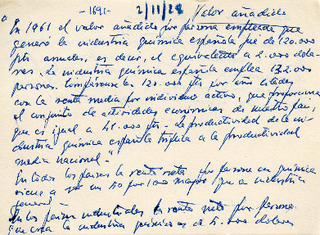 -1691- 2/11/28 Valor añadido
"En 1961 el valor añadido por persona empleada que
generó la industria química española fue de 120.000
pts anuales, es decir, el equivalente a 2.000 dóla-
res. La industria química española emplea 132.000
personas. Comparemos las 120.000 pts por año citadas
con la renta media por individuo activo, que proporciona
el conjunto de actividades económicas de nuestro país,
que es igual a 41.000 pts. La productividad de la in-
dustria química española triplica a la productividad
media nacional."
En todos los países la renta neta por persona en química
viene a ser un 50 por 100 mayor que la industria
general
En los países industriales la renta neta por persona
que crea la industria química es de 5.000 dólares